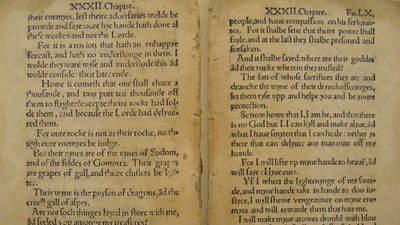 XXXII. Chaptre.
their enemyes, lest their aduersaries wolde be
prowde and saye: oure hye hande hath done al
these workes and not the Lorde.
For it is a nacion that hath an vnhappye
forcast, and hath no vnderstonge in them. I
wolde they were wyse and vnderstode this ād
wolde consider their later ende.
How it cometh that one shall chace a
thousande, and two putt ten thousande off
them to flyghte? excepte their rocke had sol-
de them, and because the Lorde had delyue-
red them.
For oure rocke is not as their rocke, no though
oure enemyes be iudge.
But their vynes are of the vynes of Sodom,
and of the feldes of Gomorra. Their grapes
are grapes of gall, and their clusters be bytter.
Their wyne is the poyson of dragons, ād the
cruell gall of aspes.
Are not soch thinges layed in store with me,
ād seeled vpp amonge my treasures?
XXXII. Chaptre. Fo. LX.
people, and haue compassion on his seruauntes.
For it shalbe sene that their power shall
fayle, and at the last they shalbe presoned and
forsaken.
And it shalbe sayed: where are their goddes
ād their rocke wherein they trusted?
The fatt of whose sacrifices they ate and
drancke the wyne of their drynckofferynges,
let them ryse vpp and helpe you and be youre
protection.
Se now how that I, I am he, and that there
is no God but I. I can kyll and make alyue, ād
what I haue smyten that I can heale: nether ys
there that can delyuer any man oute off my
honde.
For I will lifte vp myne hande to heauen, ād
will saye: I lyue euer.
Yf I whett the lyghtenynge of my swerde,
and myne hande take in hande to doo iustyce,
I wyll shewe vengeaunce on myne enemyes
and will rewarde them that hate me.
I will make myne arowes dronke with bloud